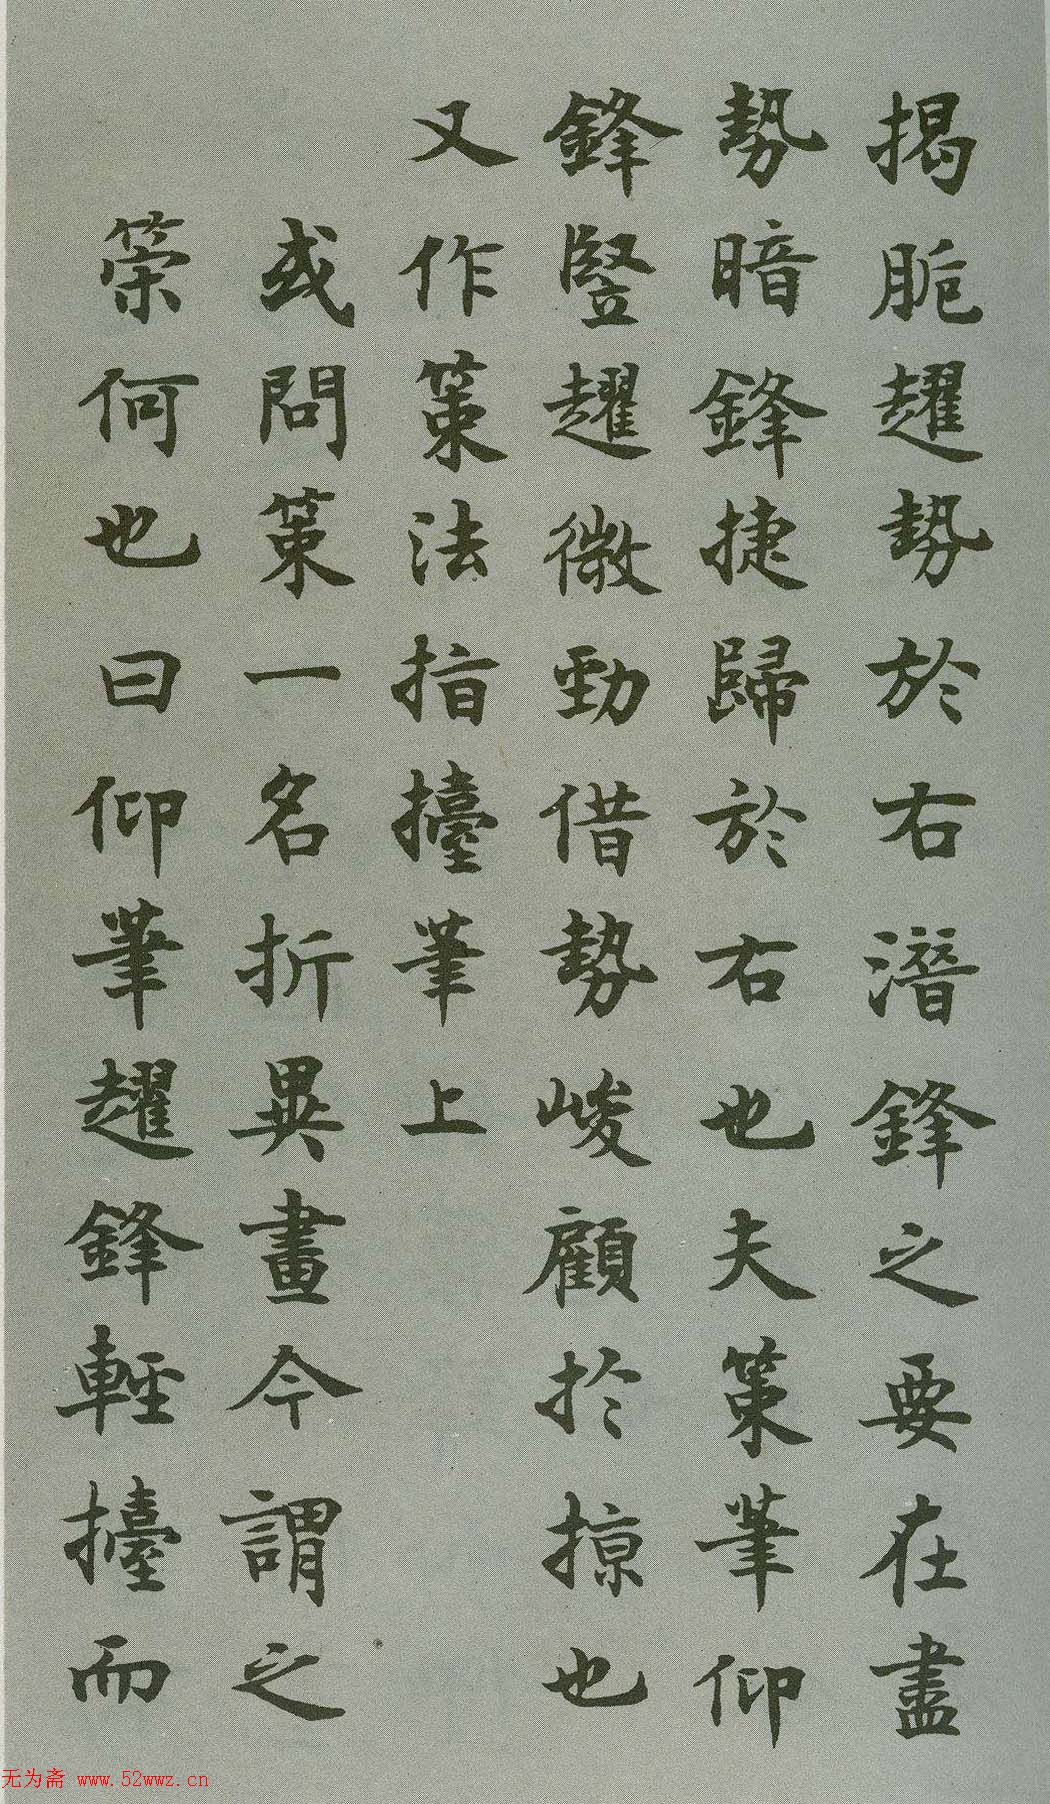 揭腕趯勢於右潛鋒之要在盡
勢暗鋒捷歸於右也夫策筆仰
鋒豎趯微勁借勢峻顧於掠也
又作策法指擡筆上
或問策一名折異畫今謂之
策何也曰仰筆趯鋒輕擡而
无为斋 www.52wwz.cn